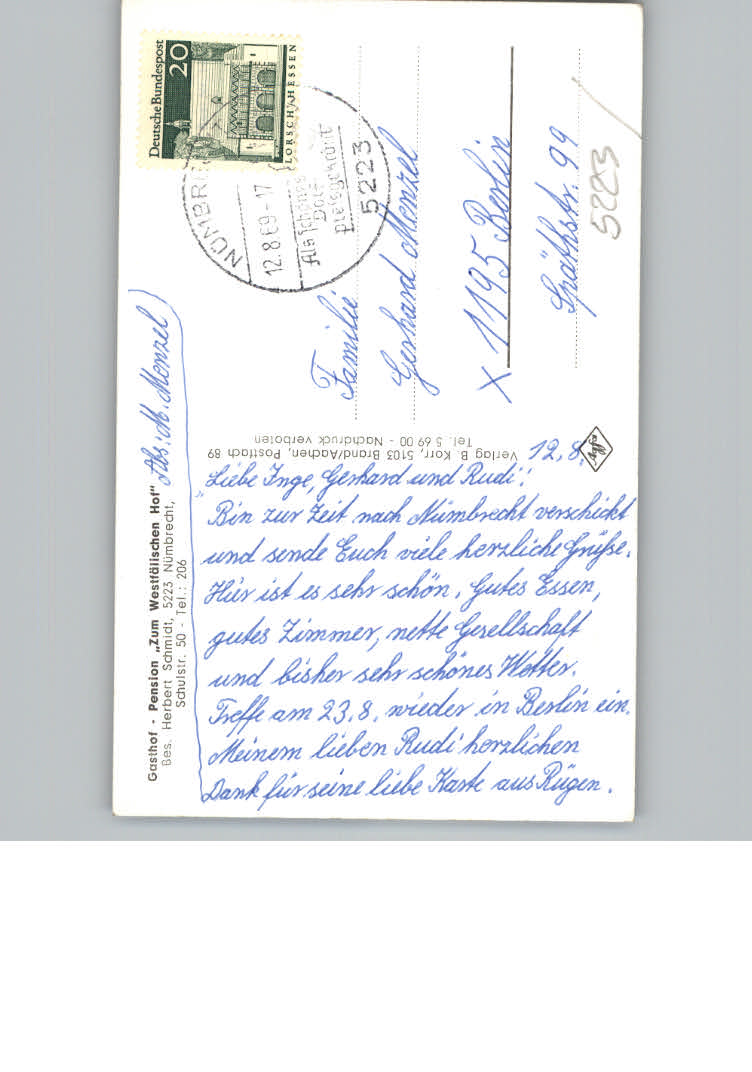 Deutsche Bundespost
20
LORSCH/HESSEN
NÜMBRE
12.8.69-17
Als schönes
Dorf
preisgekrönt
5223
Familie
Gerhard Menzel
X 1195 Berlin
Späthstr. 99
5223
Abs: M. Menzel
Gasthof - Pension „Zum Westfälischen Hof"
Bes. Herbert Schmidt, 5223 Nümbrecht,
Schulstr. 50 - Tel.: 206
Verlag B. Korr, 5103 Brand/Aachen, Postfach 89
Tel. 5 69 00 - Nachdruck verboten
12.8.
Liebe Inge, Gerhard und Rudi!
Bin zur Zeit nach Nümbrecht verschickt
und sende Euch viele herzliche Grüße.
Hier ist es sehr schön. Gutes Essen,
gutes Zimmer, nette Gesellschaft
und bisher sehr schönes Wetter.
Treffe am 23.8. wieder in Berlin ein.
Meinem lieben Rudi herzlichen
Dank für seine liebe Karte aus Rügen.